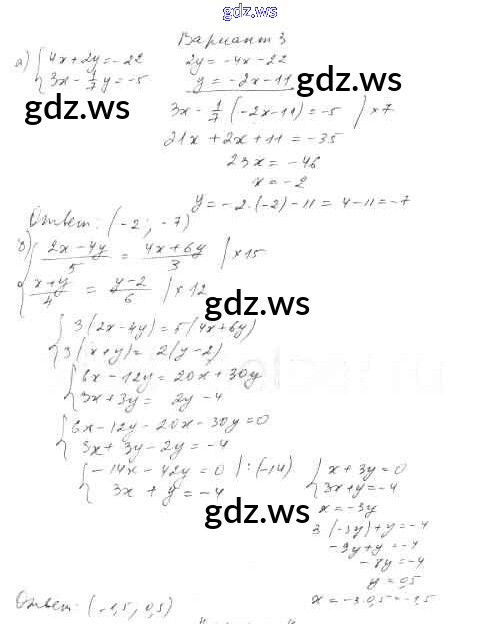 gdz.ws
Вариант 3
а) {4x + 2y = -22
3x - 1/7 y = -5
2y = -4x - 22
y = -2x - 11
gdz.ws
gdz.ws
3x - 1/7 (-2x - 11) = -5 | ×7
21x + 2x + 11 = -35
23x = -46
x = -2
y = -2·(-2) - 11 = 4 - 11 = -7
Ответ: (-2; -7)
б) {(2x - 4y)/5 = (4x + 6y)/3 | ×15
(x + y)/4 = (y - 2)/6 | ×12
gdz.ws
{3(2x - 4y) = 5(4x + 6y)
3(x + y) = 2(y - 2)
{6x - 12y = 20x + 30y
3x + 3y = 2y - 4
{6x - 12y - 20x - 30y = 0
3x + 3y - 2y = -4
{-14x - 42y = 0 | :(-14)
3x + y = -4
{x + 3y = 0
3x + y = -4
x = -3y
gdz.ws
3(-3y) + y = -4
-9y + y = -4
-8y = -4
y = 0,5
x = -3·0,5 = -1,5
Ответ: (-1,5; 0,5)